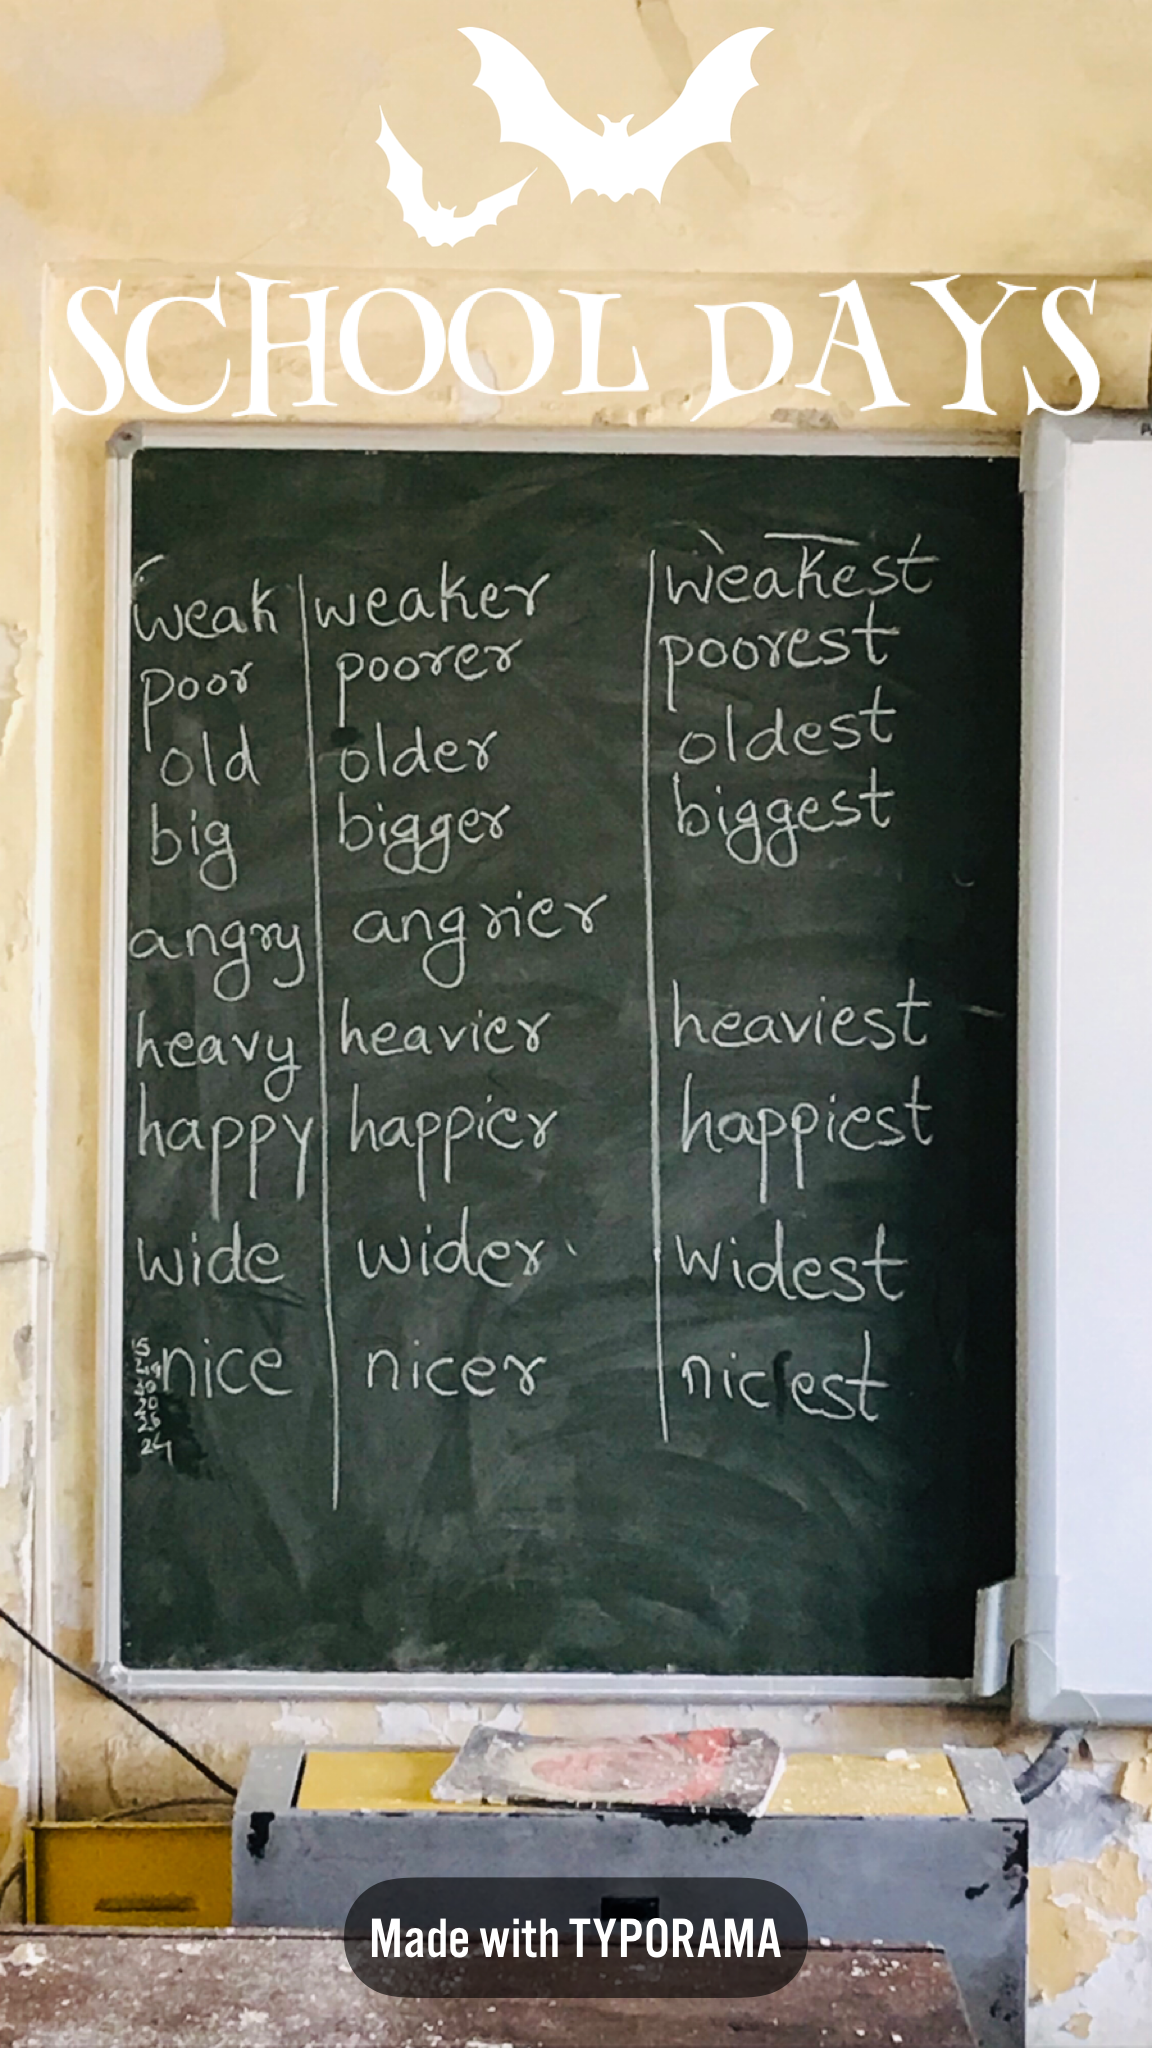 SCHOOL DAYS
weak weaker weakest
poor poorer poorest
old older oldest
big bigger biggest
angry angrier
heavy heavier heaviest
happy happier happiest
wide wider widest
nice nicer nicest
20
24
Made with TYPORAMA